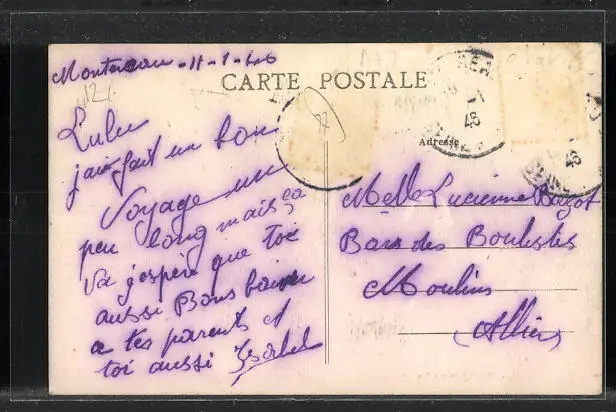 Montereau - 11-1-46
CARTE POSTALE
Lulu
j'ai fait un bon
Voyage un
peu long mais ça
va j'espère que toi
aussi Bons baisers
a tes parents et
toi aussi
Adresse
Melle Lucienne
Bar des Boulistes
Moulins
Allier